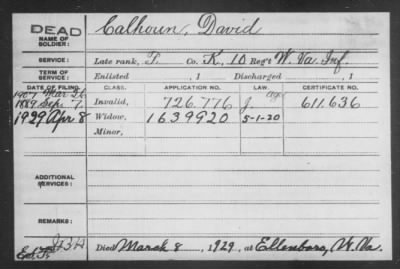 DEAD
NAME OF SOLDIER: Calhoun, David
SERVICE: Late rank, P. Co. K, 10 Reg't W. Va. Inf.
TERM OF SERVICE: Enlisted , 1 Discharged , 1
DATE OF FILING. CLASS. APPLICATION NO. LAW. CERTIFICATE NO.
1907 Mar 26
1889 Sept. 7. Invalid, 726.776 J. 611.636
1929 Apr 8 Widow, 1639920 5-1-20
Minor,
ADDITIONAL SERVICES:
REMARKS:
Died March 8, 1929, at Ellenboro, W. Va.